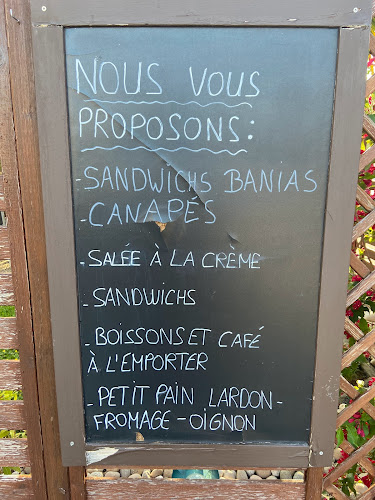 NOUS VOUS
PROPOSONS:
-SANDWICHS BANIAS
-CANAPÉS
-SALÉE À LA CRÈME
-SANDWICHS
-BOISSONS ET CAFÉ
À L'EMPORTER
-PETIT PAIN LARDON-
FROMAGE-OIGNON